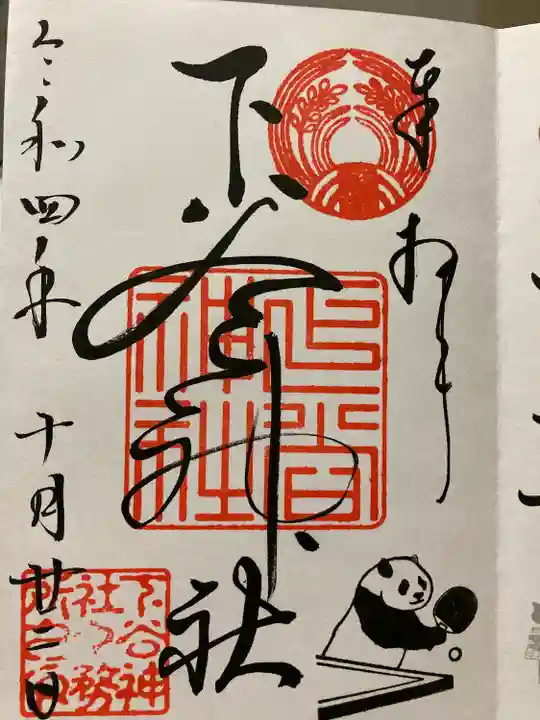 奉拝
下谷神社
下谷神社
令和四年 十月廿二日
下谷神
社つ務
所之印